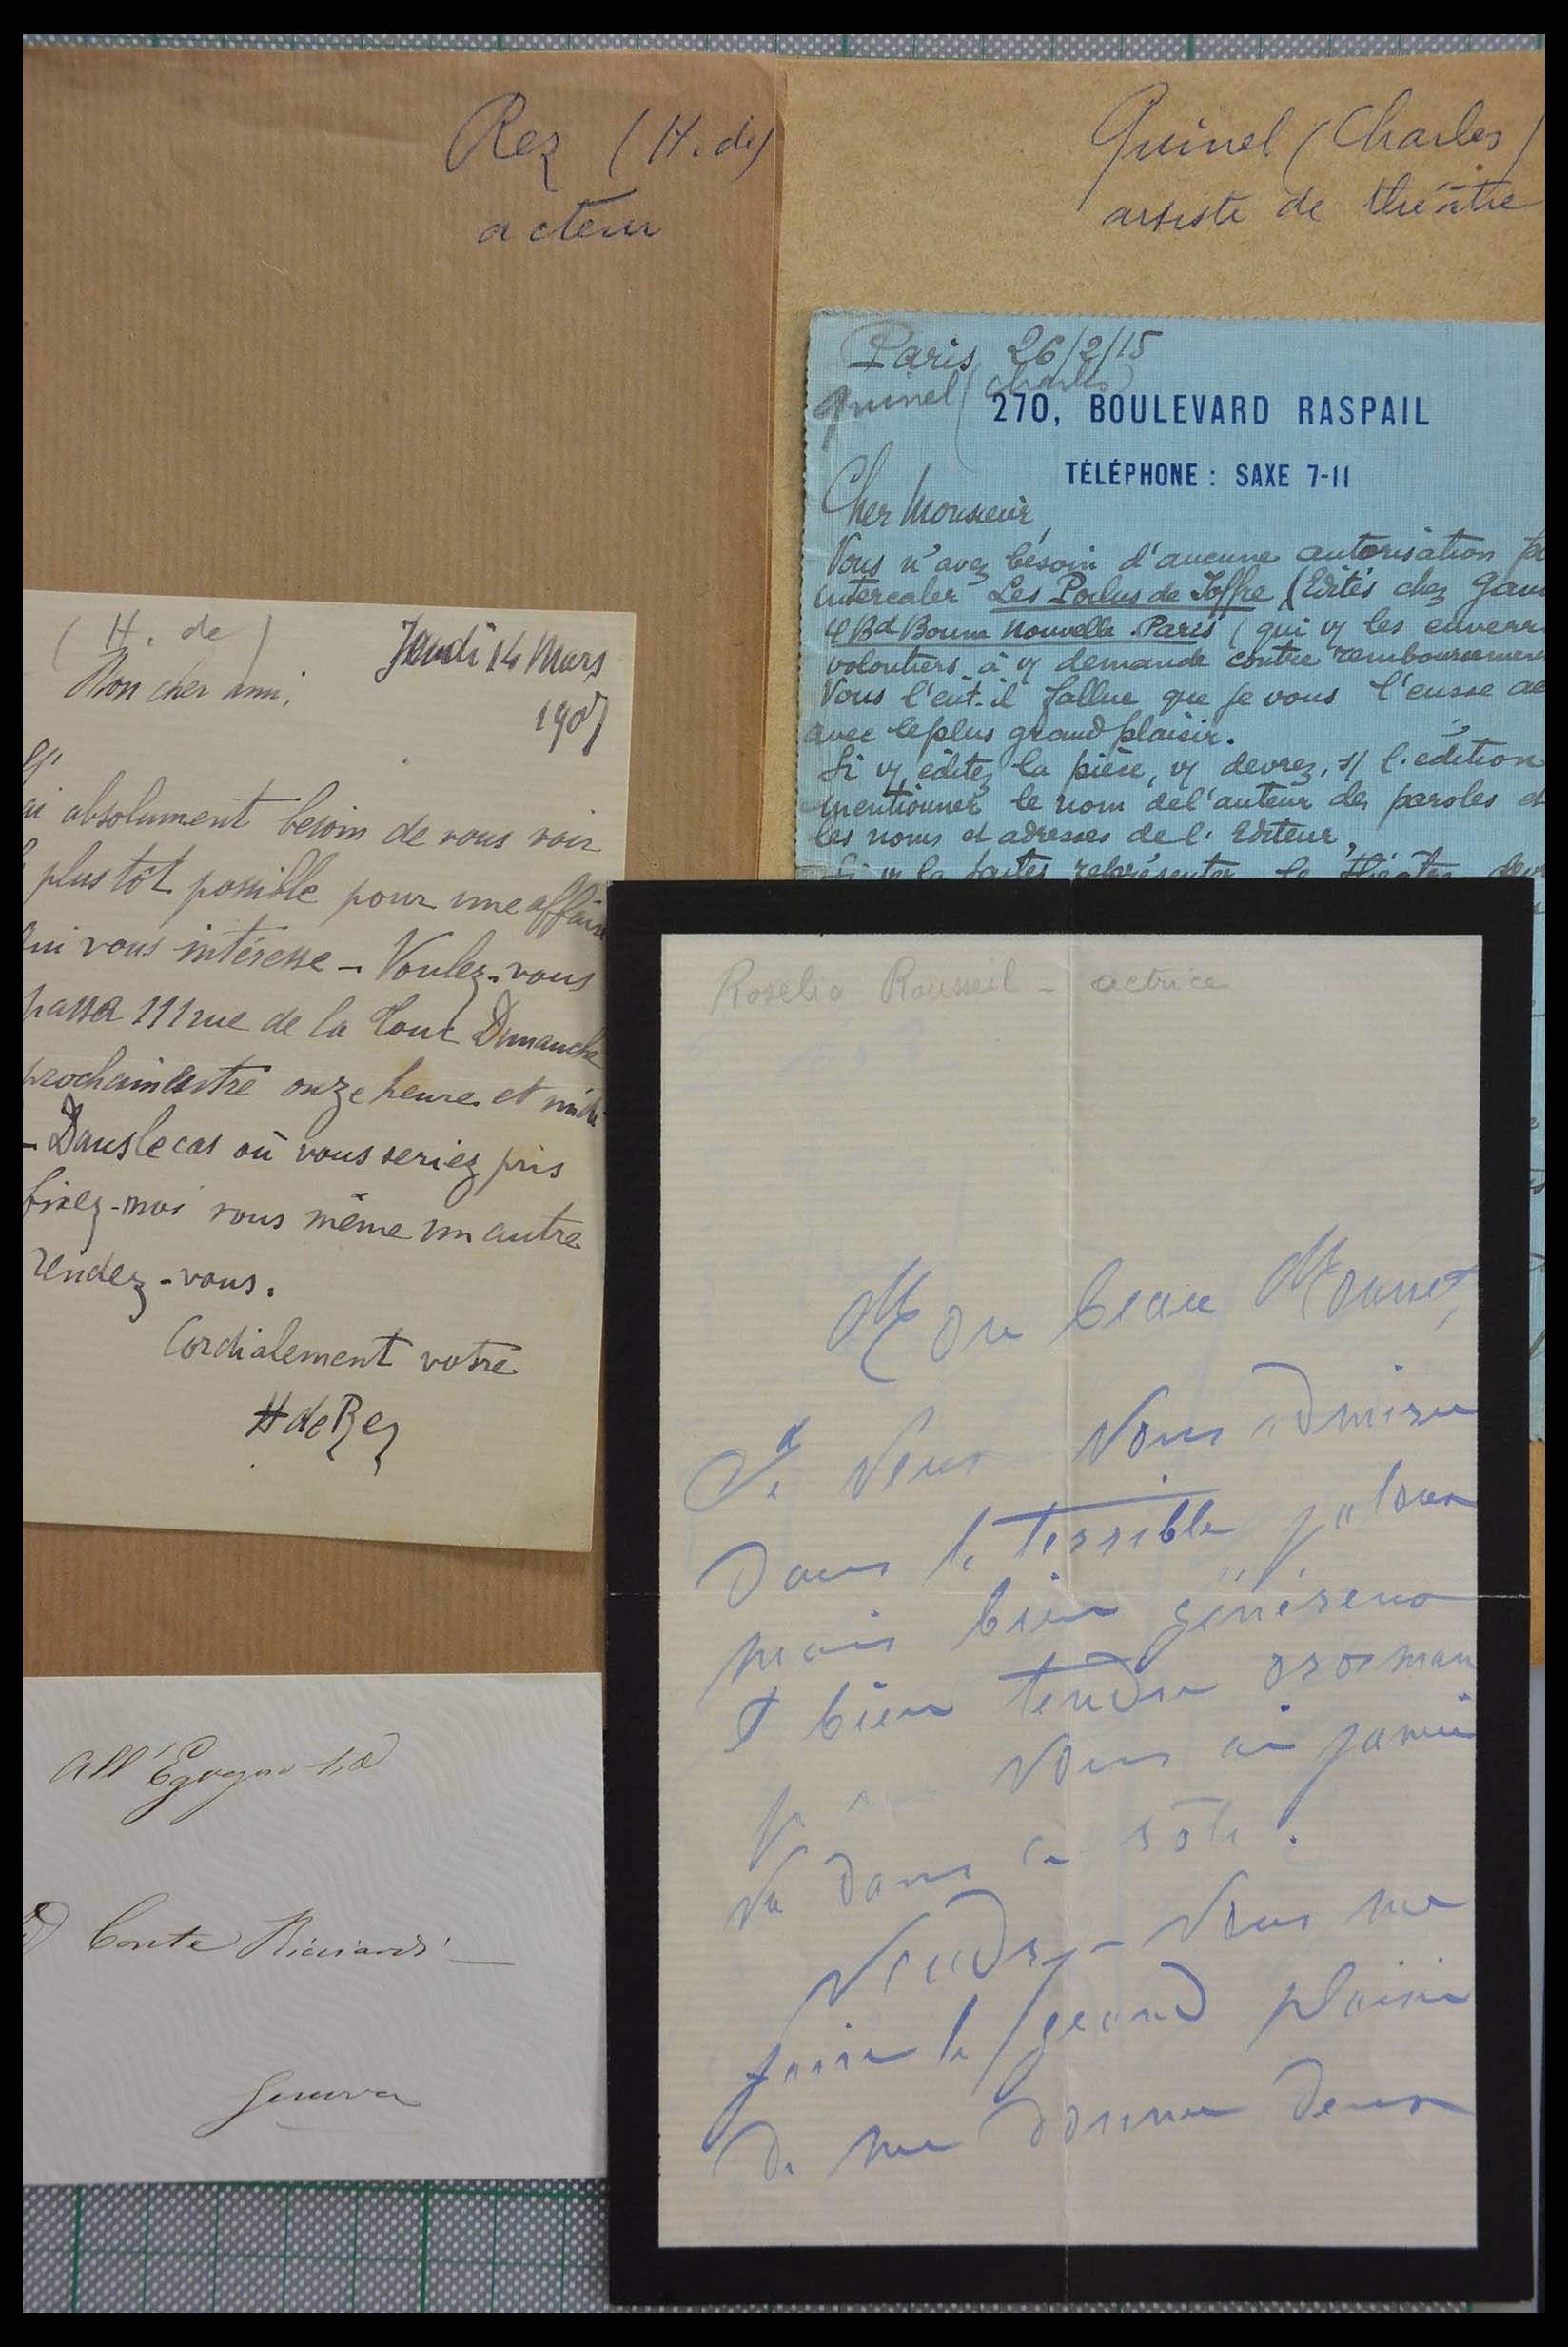 Rez (H. de)
acteur
Quinel (Charles)
artiste de théâtre
Paris 26/2/15
Quinel (Charles)
270, BOULEVARD RASPAIL
TÉLÉPHONE : SAXE 7-11
Cher Monsieur,
Vous n'avez bésoin d'aucune autorisation
intercaler Les Poilus de Joffre (Edités chez
4 Bd Bonne Nouvelle. Paris (qui vs les
volontiers à vs demande contre
Vous l'eût-il fallue que je vous l'eusse
avec le plus grand plaisir.
Si vs éditez la pièce, vs devrez, s/ l'édition
mentionner le nom de l'auteur des paroles et
les noms et adresses de l'Editeur,
Si vs la faites représenter le théâtre
(H. de)
Jeudi 14 Mars
1907
Mon cher ami,
absolument besoin de vous voir
plus tôt possible pour une affaire
qui vous intéresse - Voulez-vous
passer 111 rue de la Tour Dimanche
prochain entre onze heures et midi
- Dans le cas où vous seriez pris
fixez-moi vous même un autre
rendez-vous.
Cordialement votre
H de Rez
Roselia Rousseil - actrice
Mon beau Mounet,
Je veux vous admirer
Dans le terrible jaloux
mais bien généreux
et bien tendre orosman
Je ne vous ai jamais
vu dans ce rôle.
Voudrez-vous me
faire le grand plaisir
de me donner deux
All'
Conte Ricciardi
Genova